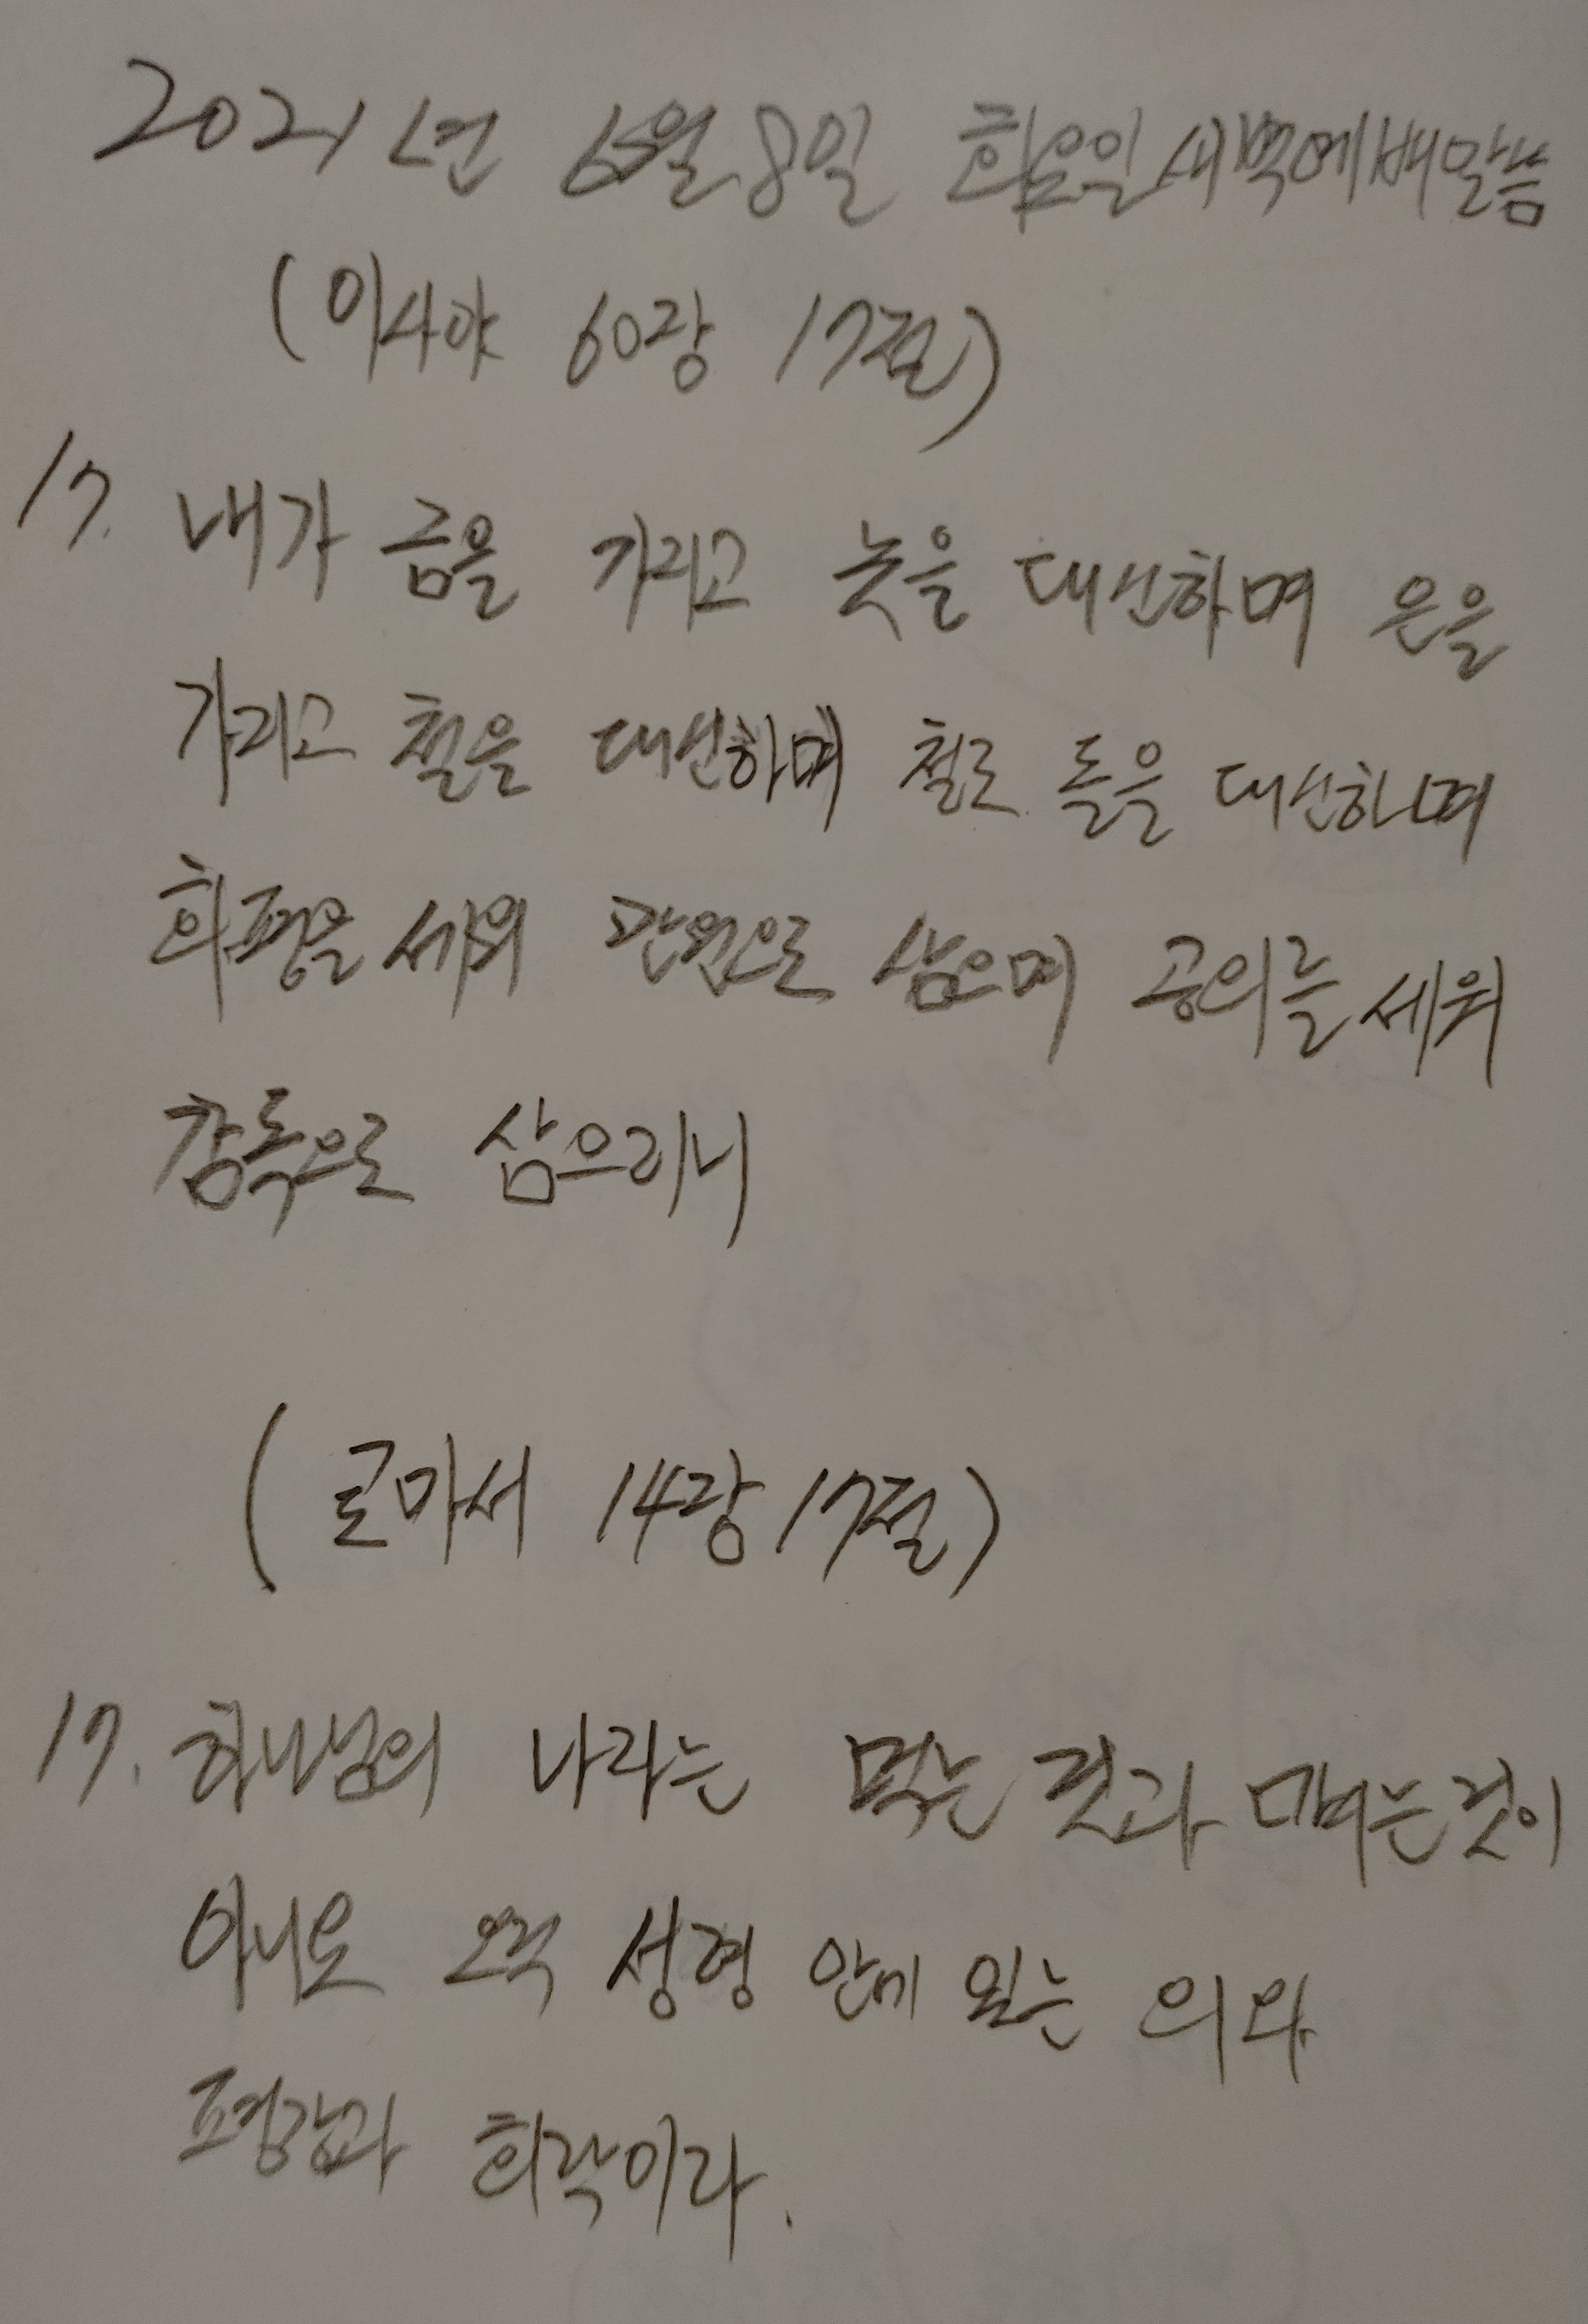 2021년 6월 8일 화요일 새벽예배말씀
(이사야 60장 17절)
17. 내가 금을 가지고 놋을 대신하며 은을
가지고 철을 대신하며 철로 돌을 대신하며
화평을 세워 관원으로 삼으며 공의를 세워
감독으로 삼으리니
(로마서 14장 17절)
17. 하나님의 나라는 먹는 것과 마시는 것이
아니요 오직 성령 안에 있는 의와
평강과 희락이라.